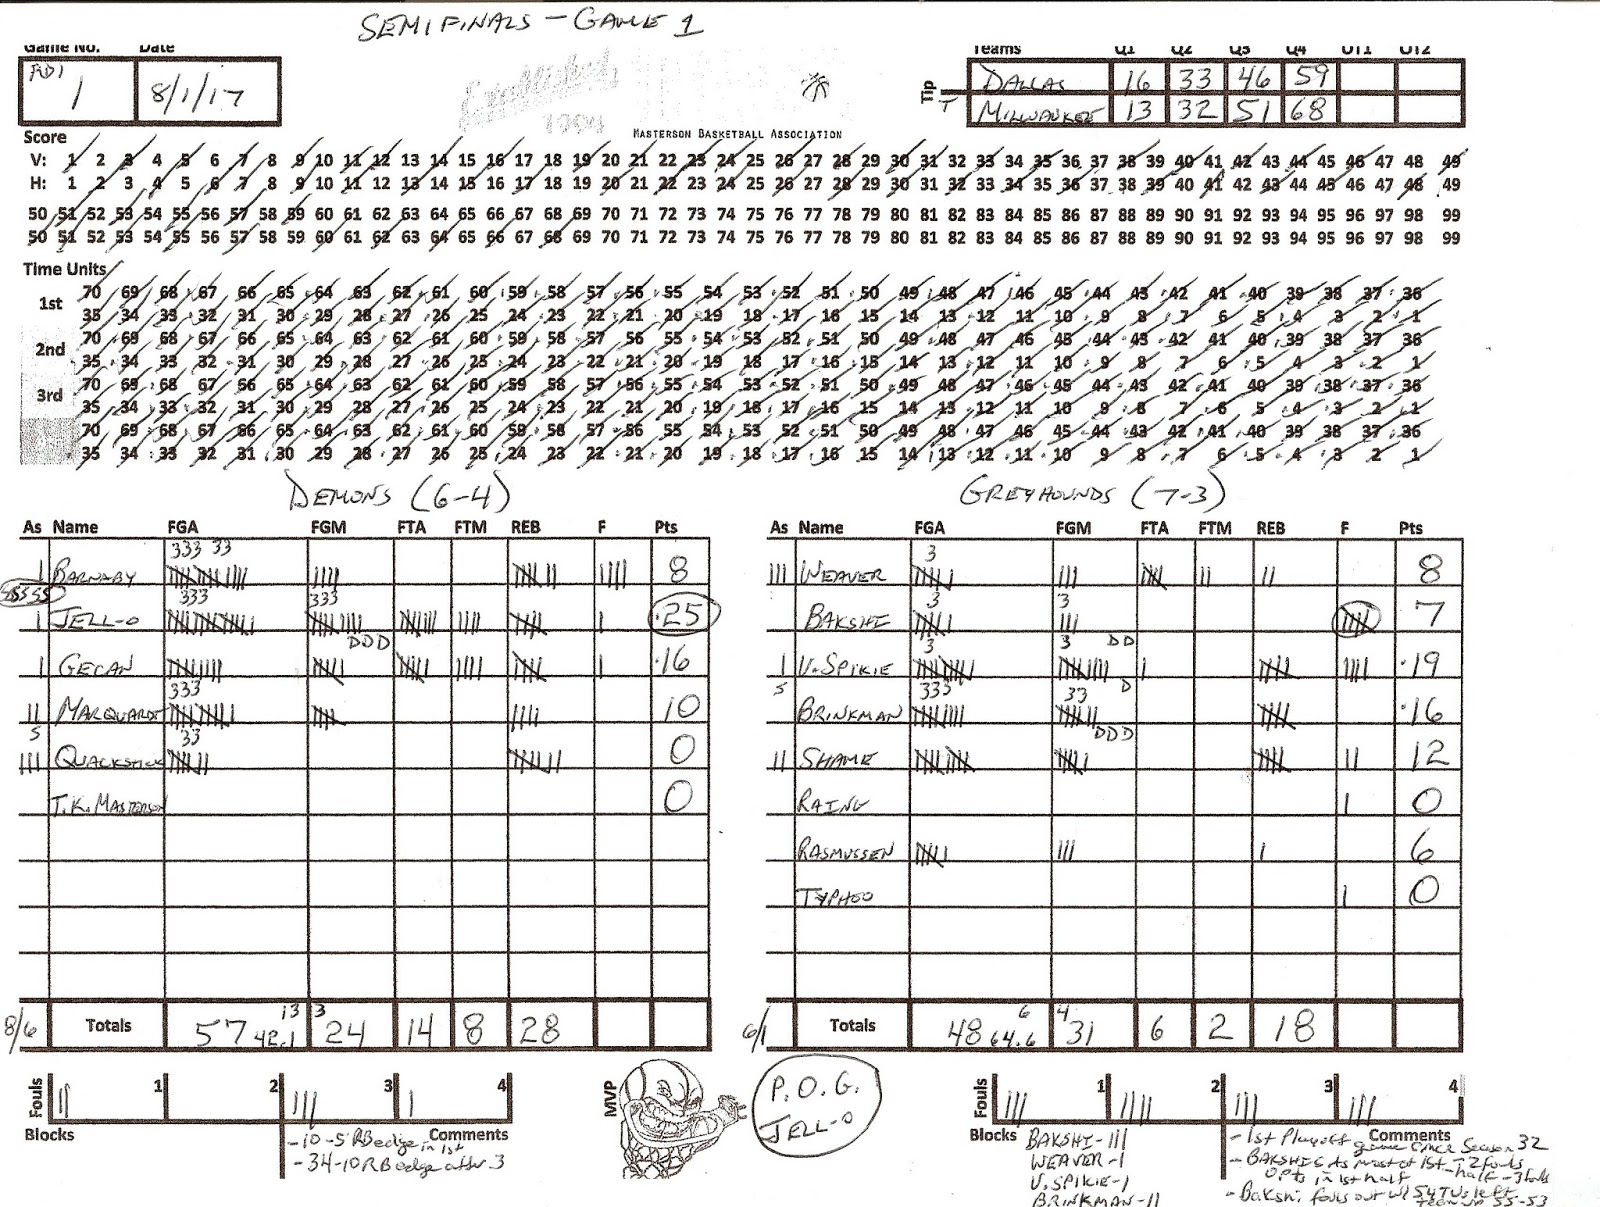 SEMIFINALS - GAME 1
Game No. Date
RD1
1 8/1/17
Established
1994
MASTERSON BASKETBALL ASSOCIATION
Teams Q1 Q2 Q3 Q4 OT1 OT2
Tip
DALLAS 16 33 46 59
T MILWAUKEE 13 32 51 68
Score
V: 1 2 3 4 5 6 7 8 9 10 11 12 13 14 15 16 17 18 19 20 21 22 23 24 25 26 27 28 29 30 31 32 33 34 35 36 37 38 39 40 41 42 43 44 45 46 47 48 49
H: 1 2 3 4 5 6 7 8 9 10 11 12 13 14 15 16 17 18 19 20 21 22 23 24 25 26 27 28 29 30 31 32 33 34 35 36 37 38 39 40 41 42 43 44 45 46 47 48 49
50 51 52 53 54 55 56 57 58 59 60 61 62 63 64 65 66 67 68 69 70 71 72 73 74 75 76 77 78 79 80 81 82 83 84 85 86 87 88 89 90 91 92 93 94 95 96 97 98 99
50 51 52 53 54 55 56 57 58 59 60 61 62 63 64 65 66 67 68 69 70 71 72 73 74 75 76 77 78 79 80 81 82 83 84 85 86 87 88 89 90 91 92 93 94 95 96 97 98 99
Time Units
1st 70 69 68 67 66 65 64 63 62 61 60 59 58 57 56 55 54 53 52 51 50 49 48 47 46 45 44 43 42 41 40 39 38 37 36
35 34 33 32 31 30 29 28 27 26 25 24 23 22 21 20 19 18 17 16 15 14 13 12 11 10 9 8 7 6 5 4 3 2 1
2nd 70 69 68 67 66 65 64 63 62 61 60 59 58 57 56 55 54 53 52 51 50 49 48 47 46 45 44 43 42 41 40 39 38 37 36
35 34 33 32 31 30 29 28 27 26 25 24 23 22 21 20 19 18 17 16 15 14 13 12 11 10 9 8 7 6 5 4 3 2 1
3rd 70 69 68 67 66 65 64 63 62 61 60 59 58 57 56 55 54 53 52 51 50 49 48 47 46 45 44 43 42 41 40 39 38 37 36
35 34 33 32 31 30 29 28 27 26 25 24 23 22 21 20 19 18 17 16 15 14 13 12 11 10 9 8 7 6 5 4 3 2 1
70 69 68 67 66 65 64 63 62 61 60 59 58 57 56 55 54 53 52 51 50 49 48 47 46 45 44 43 42 41 40 39 38 37 36
35 34 33 32 31 30 29 28 27 26 25 24 23 22 21 20 19 18 17 16 15 14 13 12 11 10 9 8 7 6 5 4 3 2 1
DEMONS (6-4)
As Name FGA FGM FTA FTM REB F Pts
333 33
BARNABY 8
333 333
JELL-O 25
DDD
GECAN 16
333
MARQUARDT 10
S 33
QUACKSTICK 0
T.K. MASTERSON 0
8/6 Totals 57 13 42.1 3 24 14 8 28
Fouls 1 2 3 4
Blocks Comments
-10-5 RB edge in 1st
-34-10 RB edge after 3
MVP
P.O.G.
JELL-O
GREYHOUNDS (7-3)
As Name FGA FGM FTA FTM REB F Pts
3
WEAVER 8
3 3
BAKSHI 7
3 3 DD
V.SPIKIE 19
S 333 33 D
BRINKMAN 16
DDD
SHAME 12
RAING 0
RASMUSSEN 6
TYPHOO 0
6/1 Totals 48 6 64.6 4 31 6 2 18
Fouls 1 2 3 4
Blocks Comments
BAKSHI-III
WEAVER-I
V.SPIKIE-I
BRINKMAN-II
-1st Playoff game since Season 32
-BAKSHI sits most of 1st half
-2 fouls
-3 fouls
0 pts in 1st half
-Bakshi fouls out w/ 54 TUs left
Team up 55-53